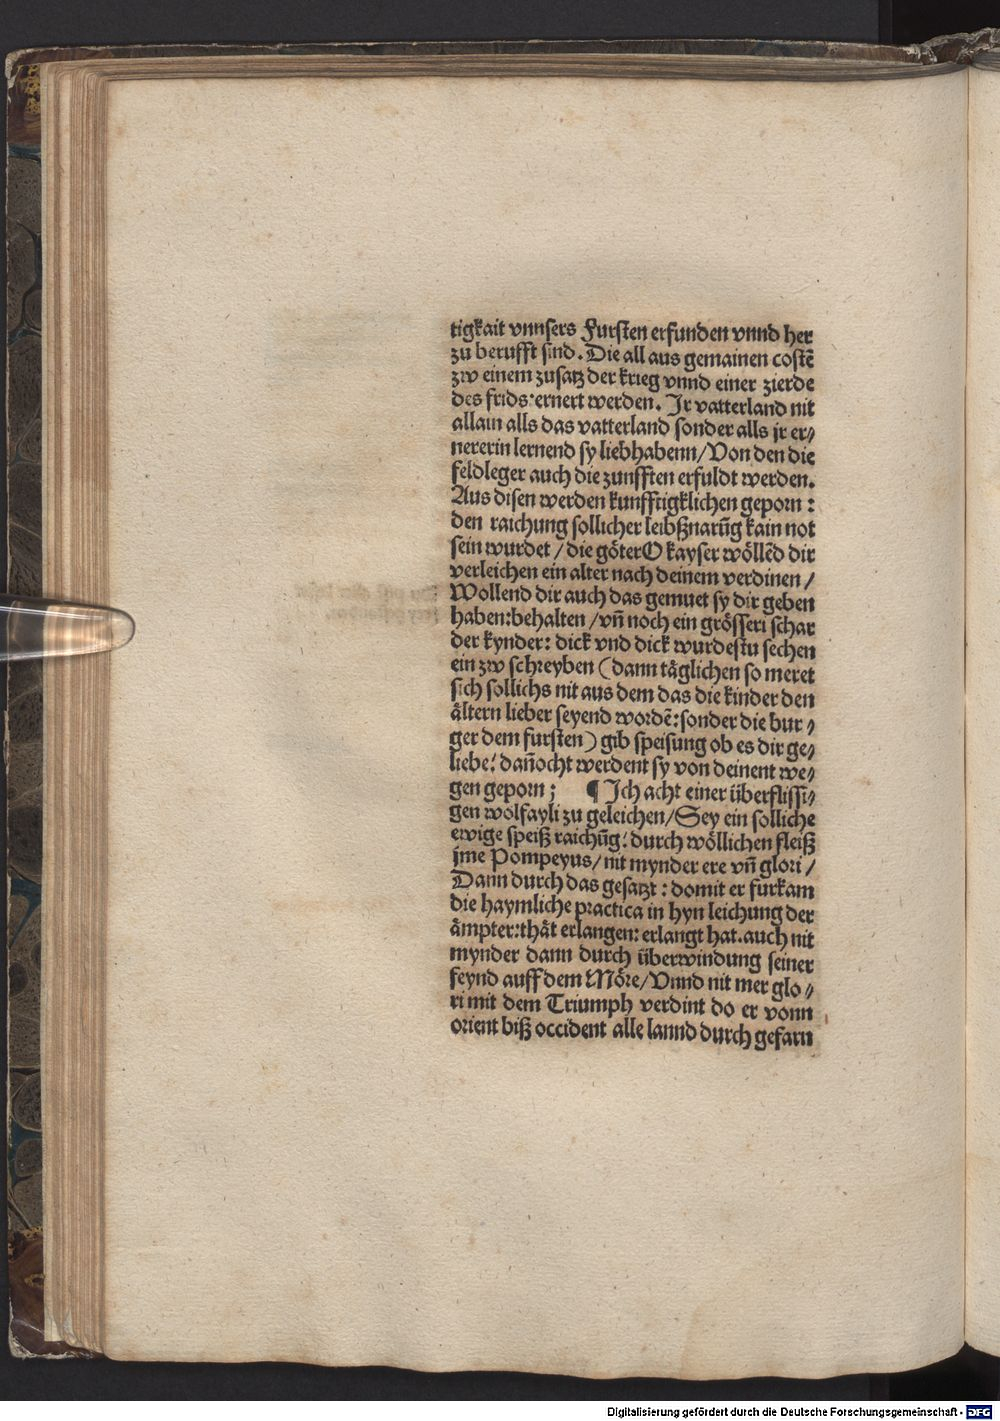 tigkait vnnsers Fursten erfunden vnnd her
zu berufft sind. Die all aus gemainen costē
zw einem zusatz der krieg vnnd einer zierde
des frids: ernert werden. Jr vatterland nit
allain alls das vatterland sonder alls jr er⸗
nererin lernend sy liebhabenn/Von den die
feldleger auch die zunfften erfuldt werden.
Aus disen werden kunfftigklichen geporn:
den raichung sollicher leibßnarūg kain not
sein wurdet/die göter O kayser wöllēd dir
verleichen ein alter nach deinem verdinen/
Wollend dir auch das gemuet sy dir geben
haben:behalten/vn̄ noch ein grösseri schar
der kynder: dick vnd dick wurdestu sechen
ein zw schreyben (dann täglichen so meret
sich sollichs nit aus dem das die kinder den
ältern lieber seyend wordē:sonder die bur⸗
ger dem fursten) gib speisung ob es dir ge⸗
liebe: dan̄ocht werdent sy von deinent we⸗
gen geporn; ¶ Jch acht einer überflissi⸗
gen wolfayli zu geleichen/Sey ein solliche
ewige speiß raichūg: durch wöllichen fleiß
jme Pompeyus/nit mynder ere vn̄ glori/
Dann durch das gesatzt: domit er furkam
die haymliche practica in hyn leichung der
ämpter:thät erlangen: erlangt hat. auch nit
mynder dann durch überwindung seiner
feynd auff dem Möre/Vnnd nit mer glo⸗
ri mit dem Triumph verdint do er vonn
orient biß occident alle lannd durch gefarn
Digitalisierung gefördert durch die Deutsche Forschungsgemeinschaft - DFG